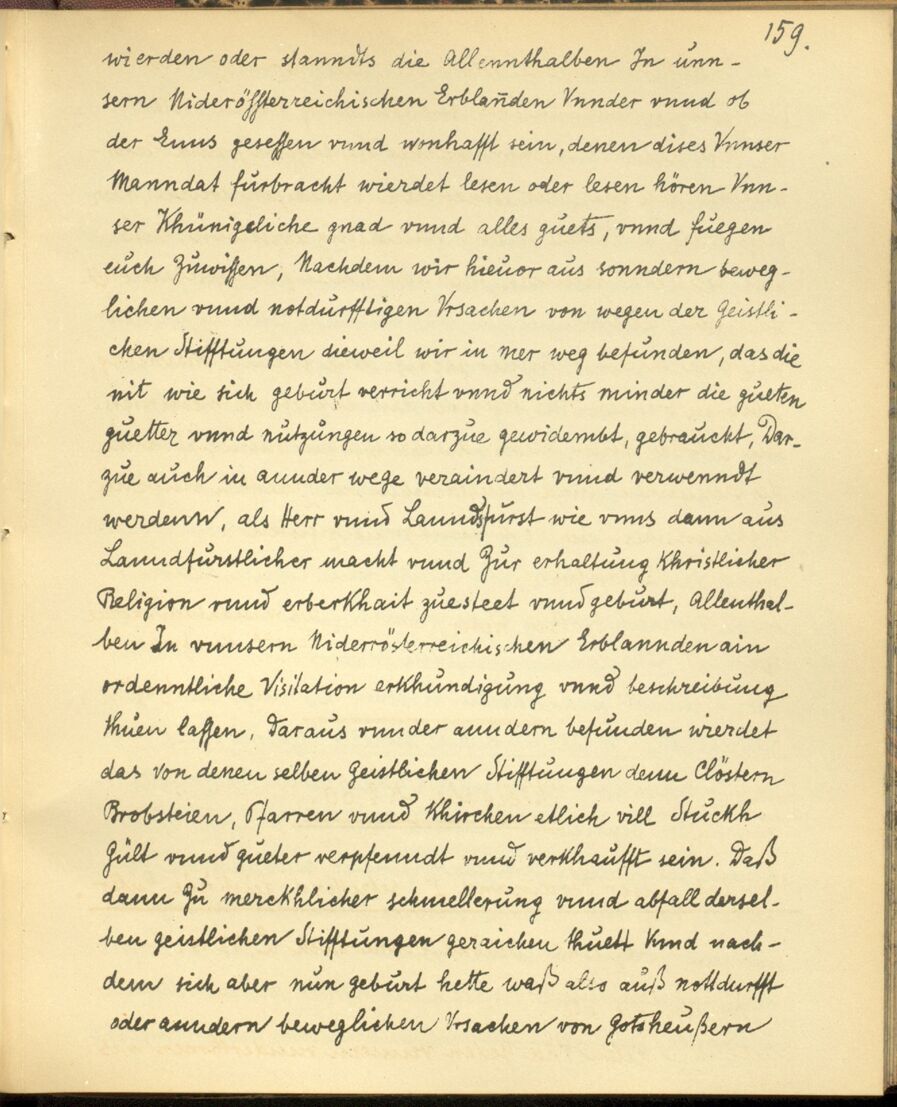 159.
wierden oder stanndts die Allennthalben In unn-
sern Niderösterreichischen Erblan̄den Vnnder vnnd ob
der Enns gesessen vnnd wonhafft sein, denen dises Vnnser
Manndat furbracht wierdet lesen oder lesen hören Vnn-
ser Khünigeliche gnad vnnd alles guets, vnnd fuegen
euch Zuwissen, Nachdem wir hieuor aus sonndern beweg-
lichen vnnd notdurfftigen Vrsachen von wegen der Geistli-
chen Stifftungen dieweil wir in mer weg befunden, das die
nit wie sich geburt verricht vnnd nichts minder die gueten
guetter vnnd nutzungen so darzue gewidembt, gebrauckt, Dar-
zue auch in annder wege veraindert vnnd verwenndt
werdenn, als Herr vnnd Lanndsfurst wie vnns dann aus
Lanndfurstlicher macht vnnd Zur erhaltung Khristlicher
Religion vnnd erberkhait zuesteet vnnd geburt, Allenthal-
ben In vnnsern Niderrösterreichischen Erblannden ain
ordenntliche Visitation erkhundigung vnnd beschreibung
thuen lassen, Daraus vnnder anndern befunden wierdet
das von denen selben Geistlichen Stifftungen denn Clöstern
Brobsteien, Pfarren vnnd Khirchen etlich vill Stuckh
Gült vnnd gueter verpfenndt vnnd verkhaufft sein. Daß
dann Zu merckhlicher schmellerung vnnd abfall dersel-
ben geistlichen Stifftungen geraichen thuett Vnnd nach-
dem sich aber nun geburt hette waß also auß nottdurfft
oder anndern beweglichen Vrsachen von Gotsheußern